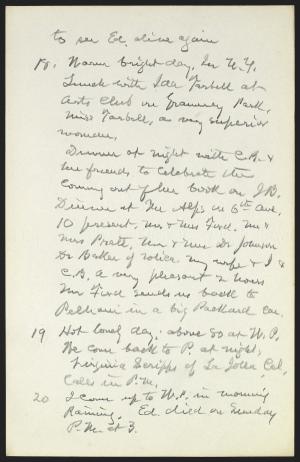 to see Ed. alive again
18. Warm bright day, In N.Y.
Lunch with Ida Tarbell at
Arts Club in Gramercy Park.
Miss Tarbell, a very superior
woman.
Dinner at night with C.B. &
her friends to celebrate the
coming out of her book on J.B.
Dinner at The Alps on 6th Ave.
10 present, Mr & Mrs Ford, Mr &
Mrs Pratt, Mr & Mrs Dr Johnson
Dr Baker of Police. my wife & I &
C.B. A very pleasant 2 hours
Mr Ford sends us back to
Pelham in a big Packard car.
19 Hot lovely day; above 80 at W.P.
We come back to P. at night;
Virginia Scripps of La Jolla Cal,
Calls in P.M.
20 I come up to W.P. in morning
Raining. Ed. died on Sunday
P.M. at 3.